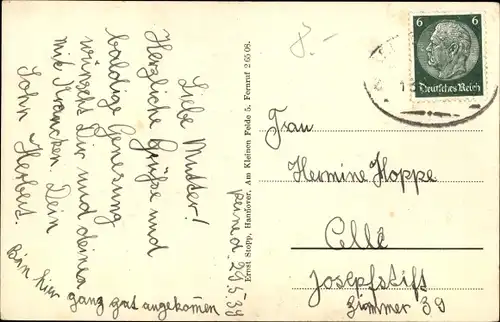 Liebe Mutter!
Herzliche Grüße und
baldige Genesung
wünscht Dir und deinen
mit Krancken. Dein
Sohn Herbert.
Bin hier ganz gut angekommen
Peine d. 29.5.39
Ernst Stopp, Hannover, Am Kleinen Felde 5. Fernruf 2 65 08.
8.-
6 6
Deutsches Reich
Frau
Hermine Hoppe
Celle
Josephstift
Zimmer 39